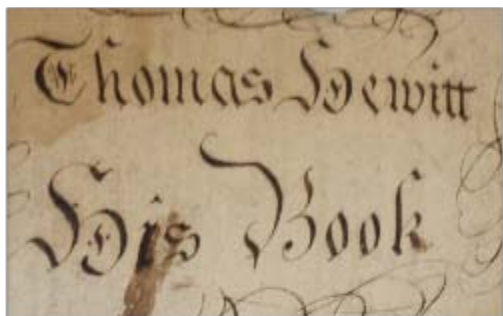 Thomas Hewitt
His Book